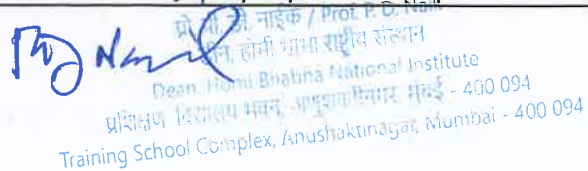 प्रो. पी. डी. नाईक / Prof. P. D. Naik
डीन, होमी भाभा राष्ट्रीय संस्थान
Dean, Homi Bhabha National Institute
प्रशिक्षण विद्यालय भवन, अणुशक्तिनगर, मुंबई - 400 094
Training School Complex, Anushaktinagar, Mumbai - 400 094